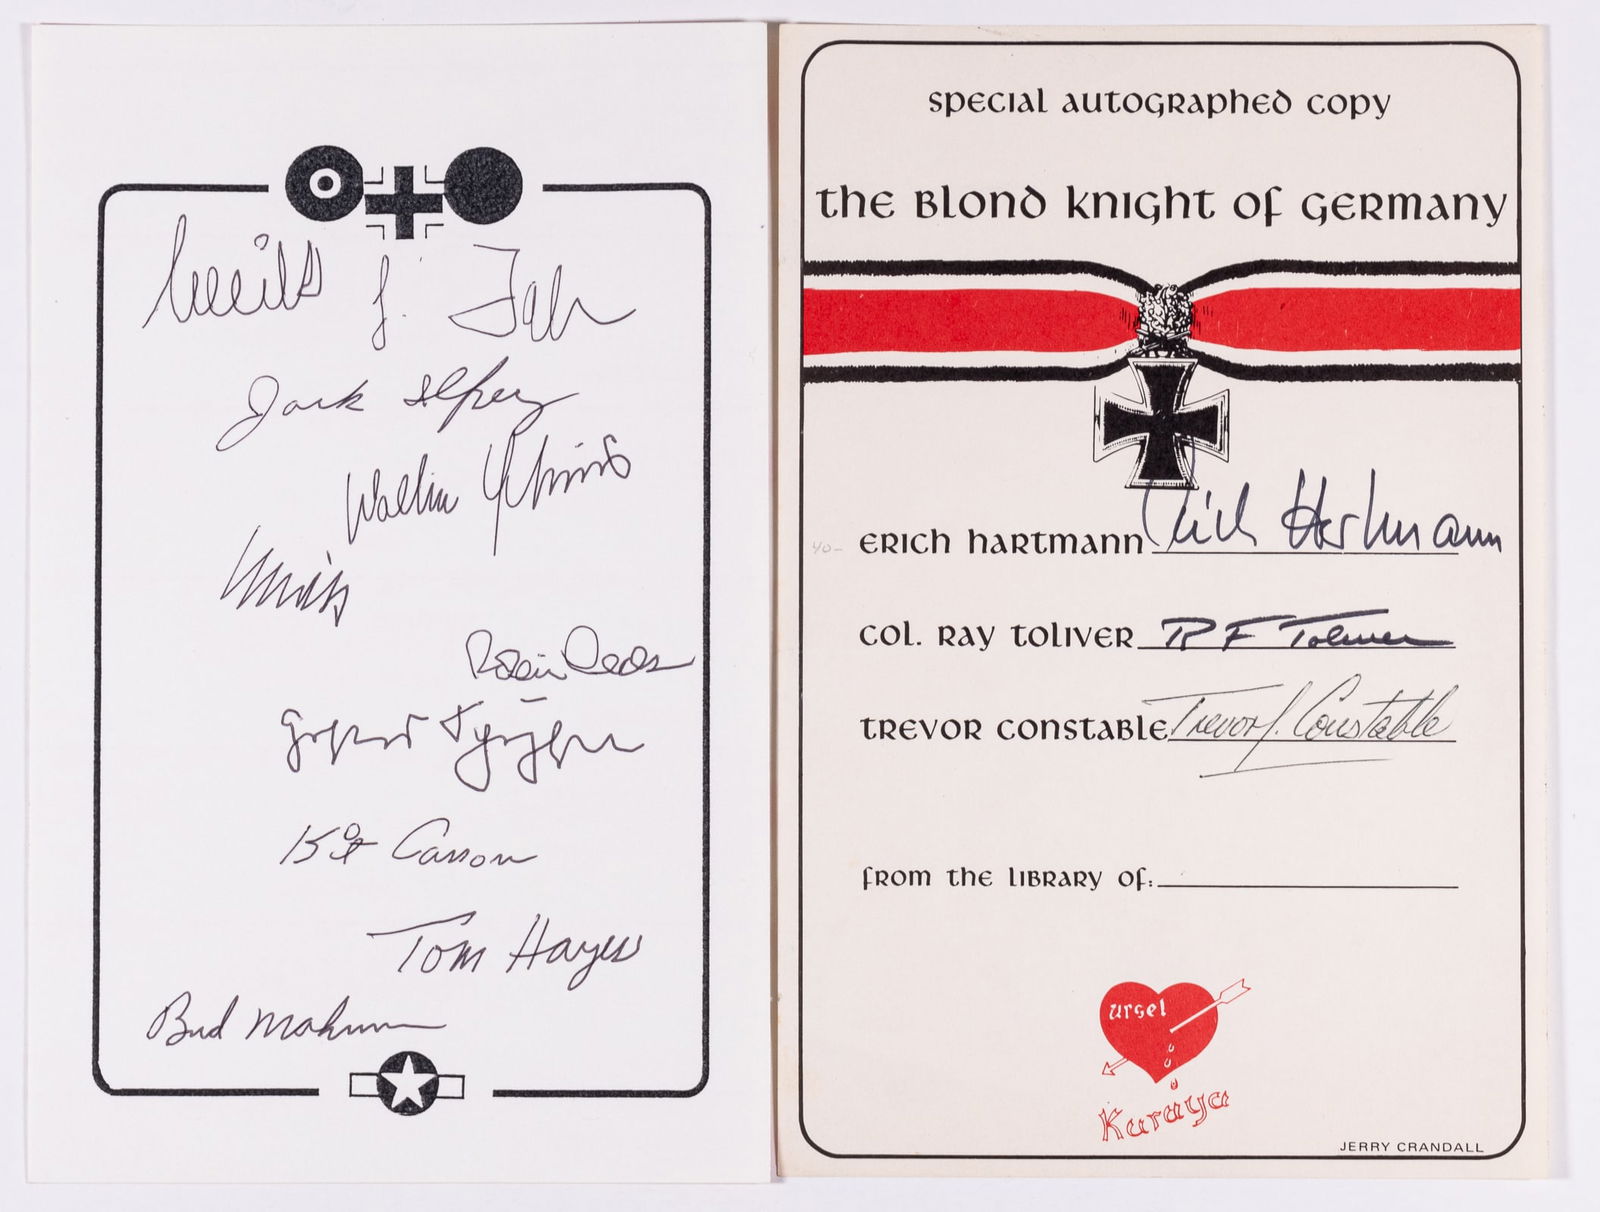 Jack Ilfrey
Robin Olds
Kit Carson
Tom Hayes
Bud Mahurin
special autographed copy
the Blond Knight of Germany
Erich Hartmann Erich Hartmann
40-
Col. Ray Toliver R F Toliver
Trevor Constable Trevor J. Constable
from the library of:
Ursel
Karaya
JERRY CRANDALL